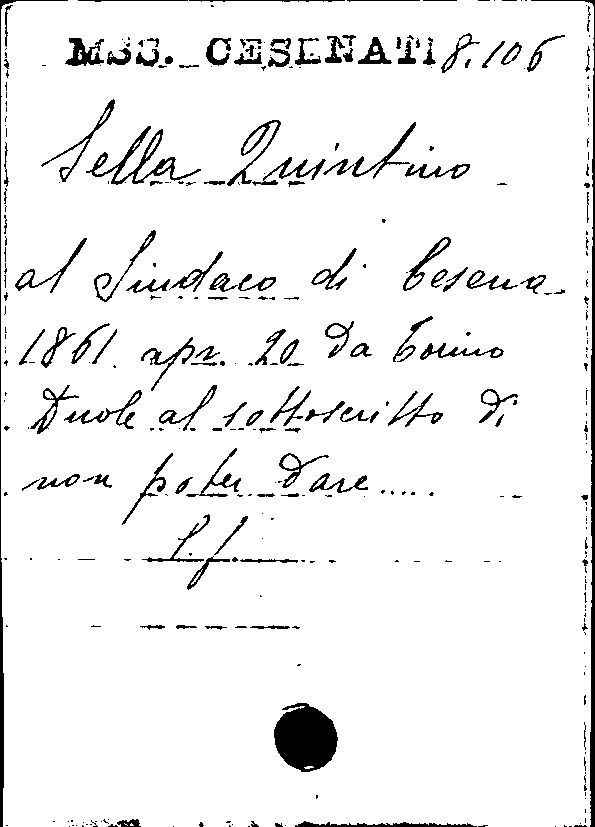 MSS. CESENATI 8.106
Sella Quintino
al Sindaco di Cesena
1861. apr. 20 da Torino
Duole al sottoscritto di
non poter dare.....
l.f.